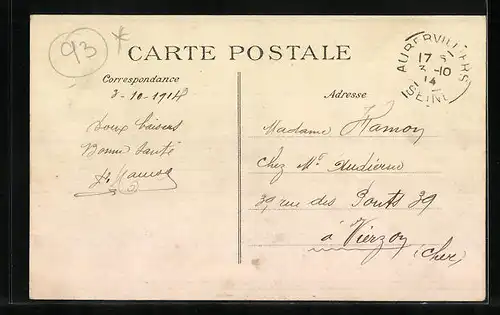 93 *
CARTE POSTALE
Correspondance
3-10-1914
Doux baisers
Bonne santé
Hamon
Adresse
Madame Hamon
chez Mr Audierne
39 rue des Ponts 39
à Vierzon
(Cher)
AUBERVILLIERS
17
3-10
14
SEINE